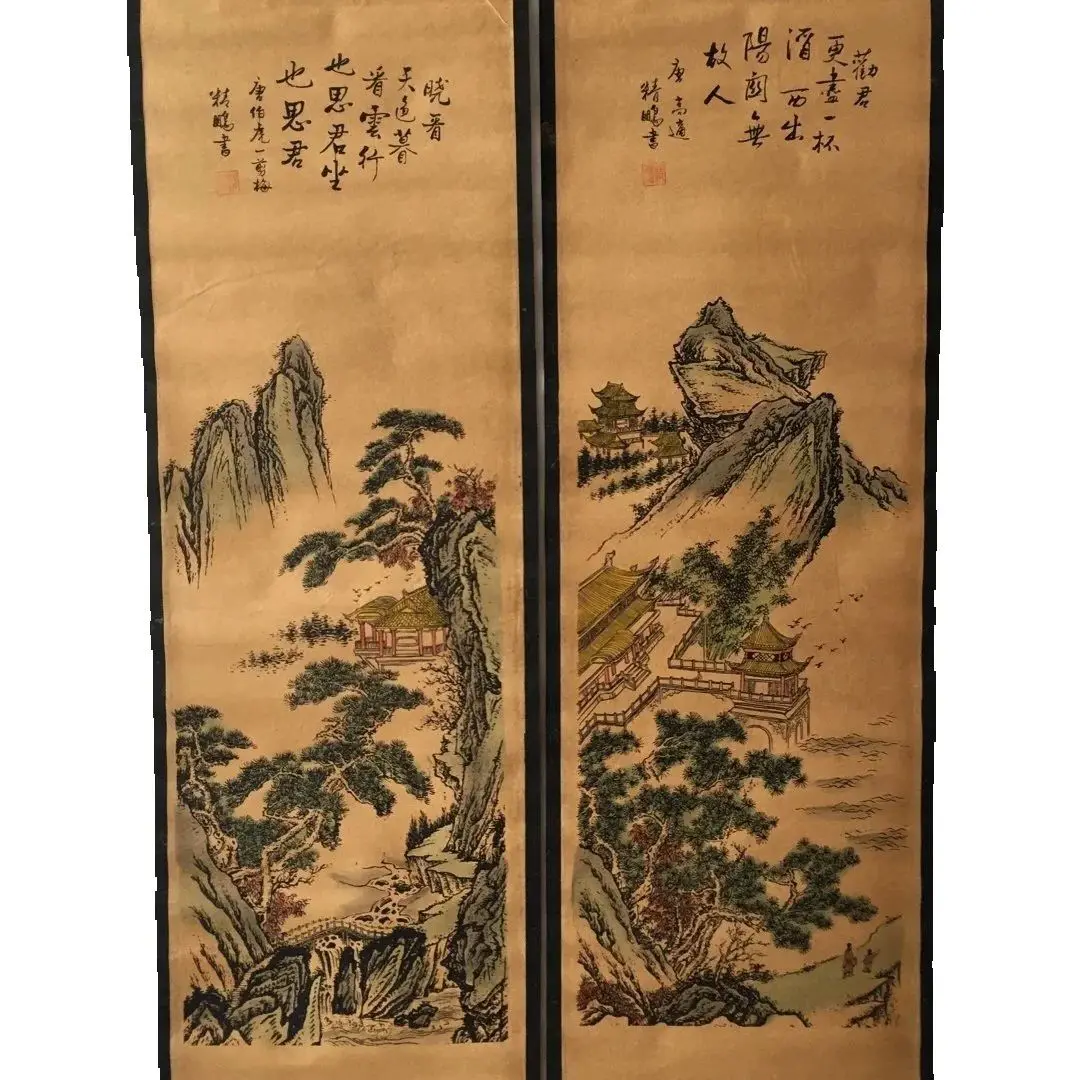 勸君
更盡一杯
酒西出
陽關無
故人
唐高適
精鵬書
晓看
天色暮
看雲行
也思君坐
也思君
唐伯虎一剪梅
精鵬書